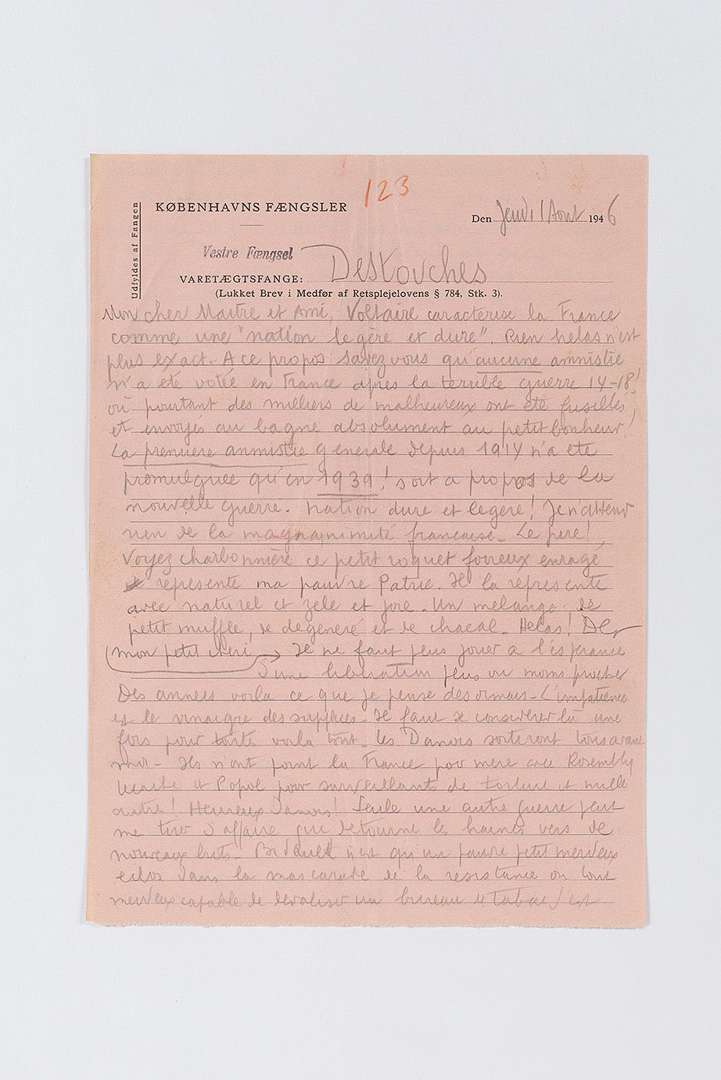 123
KØBENHAVNS FÆNGSLER
Den Jeudi 1 Aout 1946
Udfyldes af Fangen
Vestre Fængsel
VARETÆGTSFANGE: Destouches
(Lukket Brev i Medfør af Retsplejelovens § 784, Stk. 3).
Mon cher Maitre et Ami, Voltaire caracterise la France
comme une "nation legère et dure". Rien helas n'est
plus exact. A ce propos savez vous qu'aucune amnistie
n'a eté votée en France après la terrible guerre 14-18!
où pourtant des milliers de malheureux ont été fusillés
et envoyes au bagne absolument au petit bonheur!
La premiere amnistie generale depuis 1914 n'a eté
promulguée qu'en 1939! soit a propos de la
nouvelle guerre. Nation dure et legère! J'en attend
rien de la magnanimité française. Le pere!
Voyez Charbonnière ce petit roquet foireux enragé
represente ma pauvre Patrie. Il la represente
avec naturel et zele et joie. Un melange de
petit muffle, de degeneré et de chacal. Helas!
mon petit cheri Je ne faut plus jouer à l'esperance
d'une liberation plus ou moins proche
Des années voila ce que je pense desormais. L'impatience
est le vinaigre des supplices. Il faut se considerer là une
fois pour toute voila tout. Les Danois sortiront tous avant
moi. Ils n'ont point la France pour mere avec Rosembly
et Popol pour surveillants de torture et mille
autre! Heureux Danois! Seule une autre guerre peut
me tirer d'affaire que detourne les haines vers de
nouveaux buts. Bidault n'est qu'un pauvre petit merdeux
eclos dans la mascarade de la resistance ou tout
merdeux capable de devaliser un bureau de tabac est